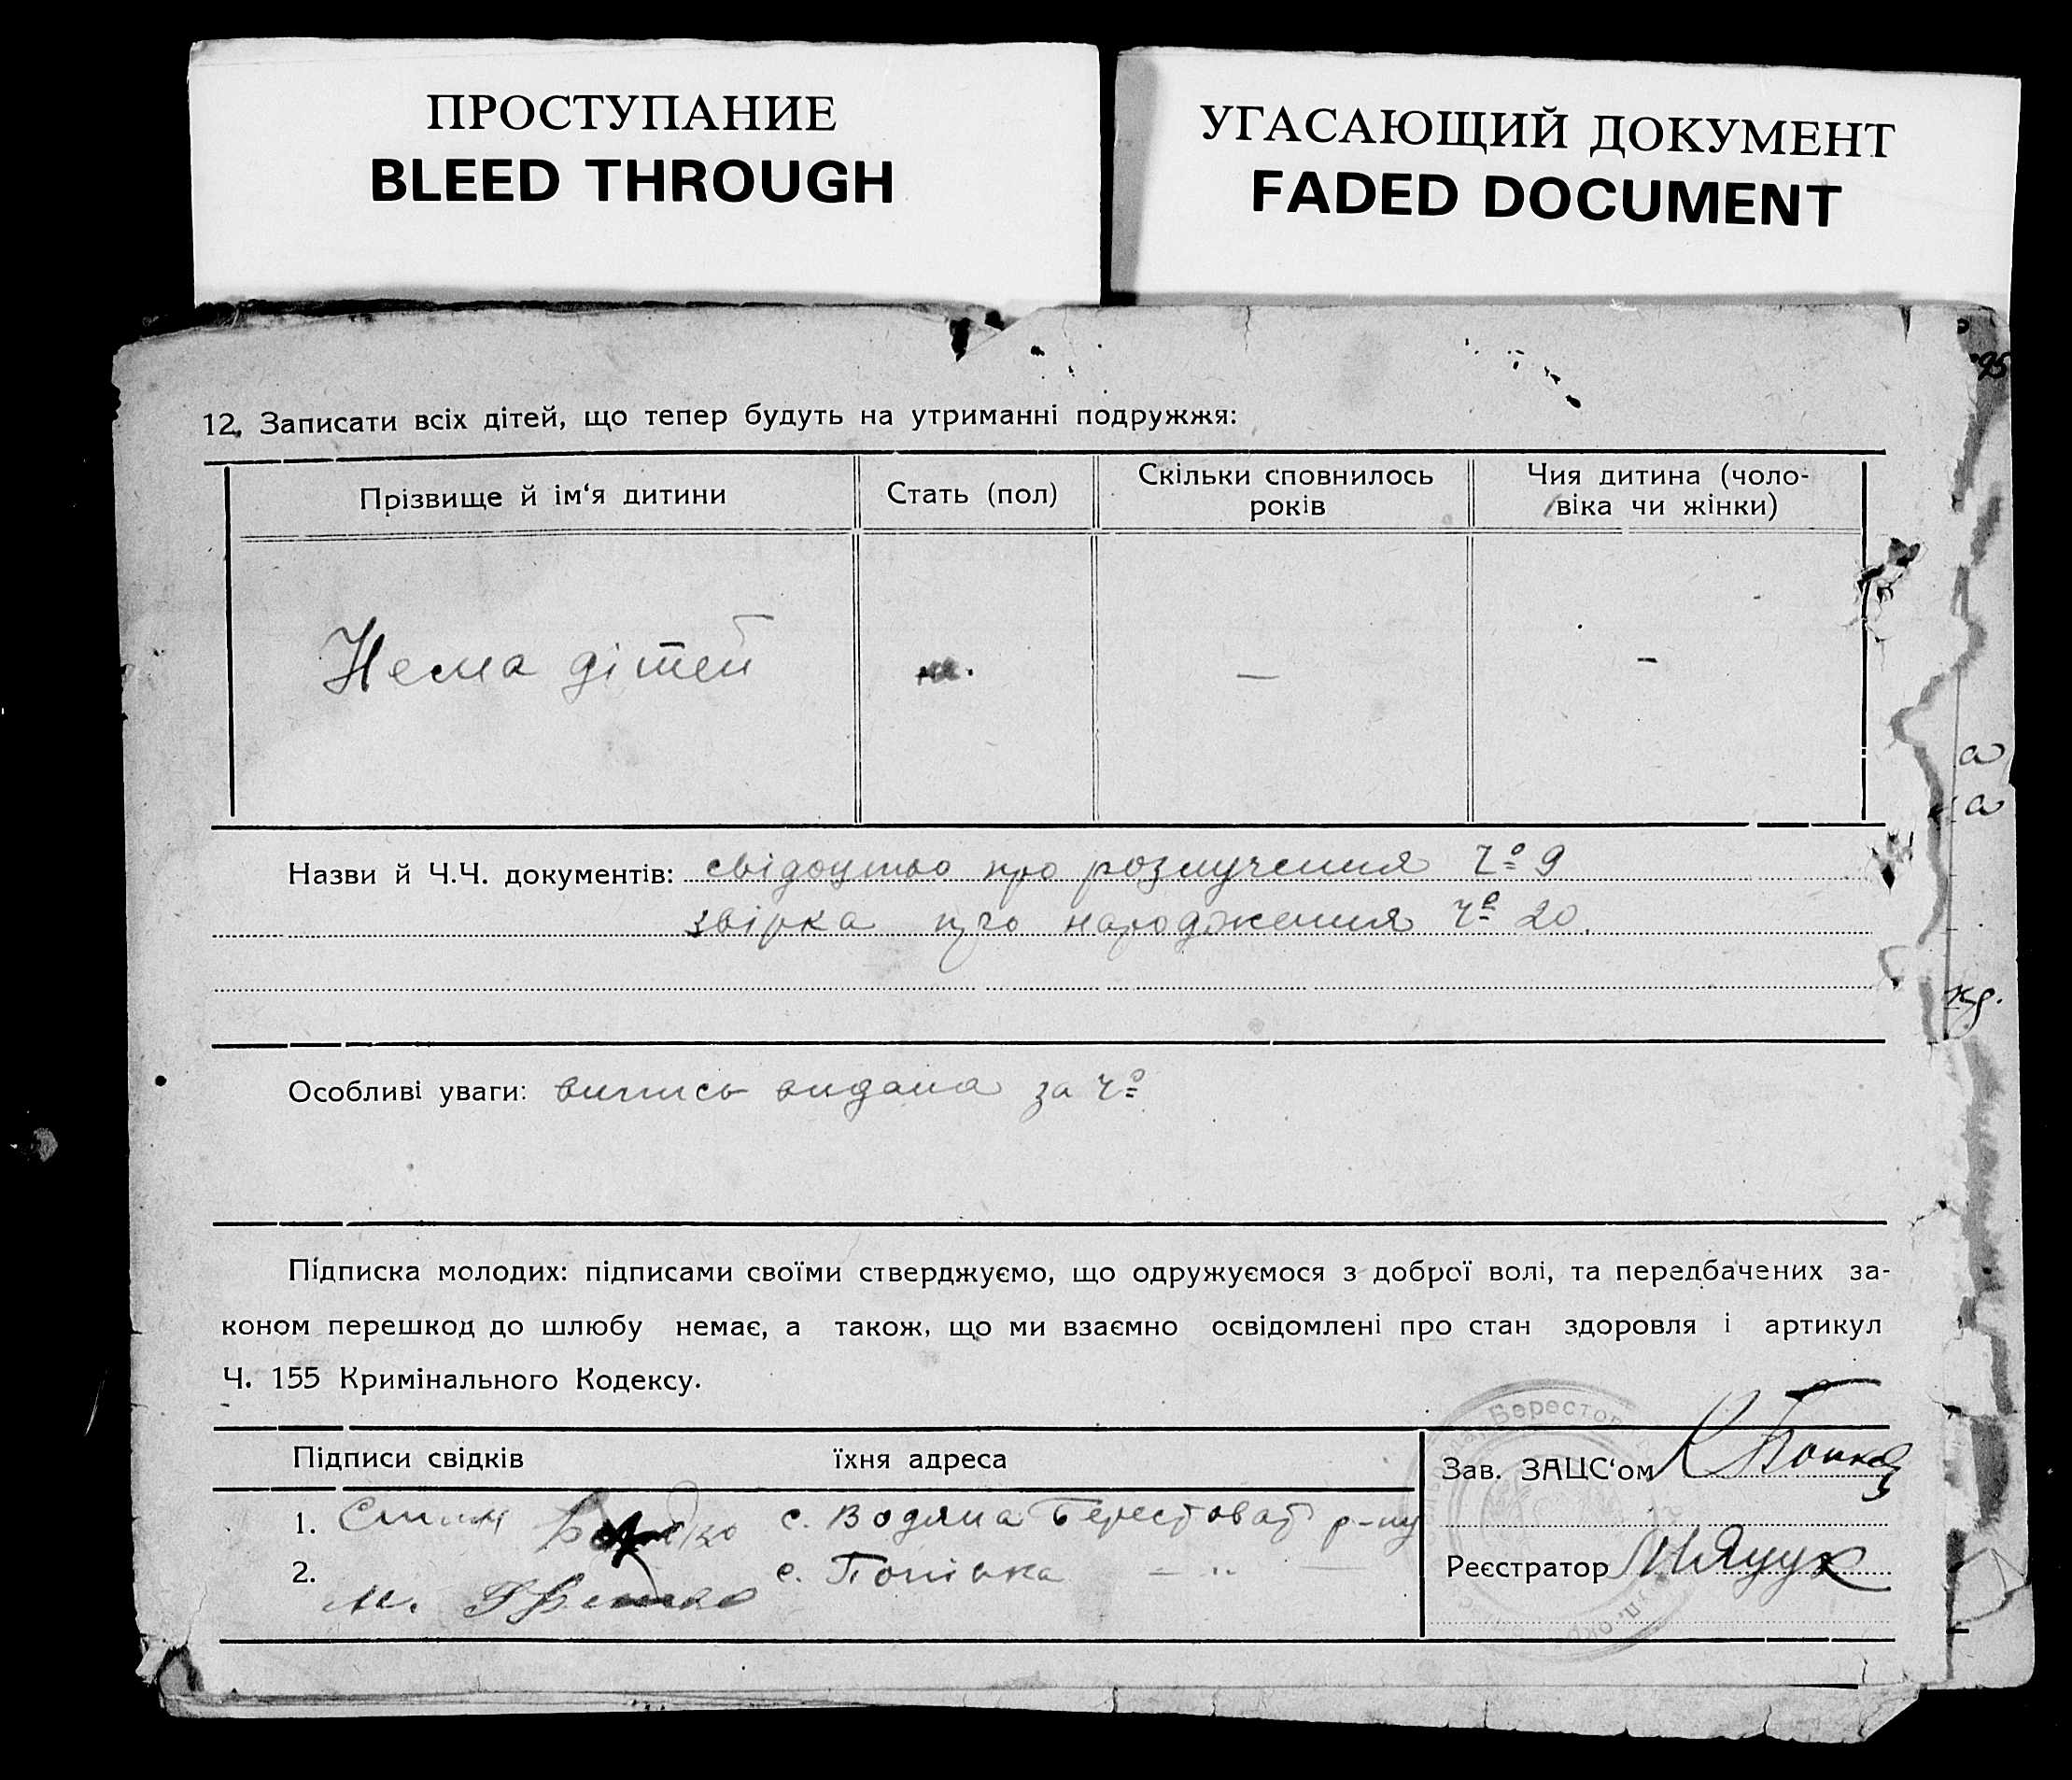 ПРОСТУПАНИЕ
BLEED THROUGH
УГАСАЮЩИЙ ДОКУМЕНТ
FADED DOCUMENT
95
12. Записати всіх дітей, що тепер будуть на утриманні подружжя:
Прізвище й ім‘я дитини
Стать (пол)
Скільки сповнилось
років
Чия дитина (чоло-
віка чи жінки)
Нема дітей
—
-
а
а
Назви й Ч.Ч. документів: свідоцтво про розлучення Ч° 9
звірка про народження Ч° 20.
Особливі уваги: випись видана за Ч°
Підписка молодих: підписами своїми стверджуємо, що одружуємося з доброї волі, та передбачених за-
коном перешкод до шлюбу немає, а також, що ми взаємно освідомлені про стан здоровля і артикул
Ч. 155 Кримінального Кодексу.
Підписи свідків
їхня адреса
1. с. Водяна Берестоват р-ну
2. с. Попівка — „ —
Зав. ЗАЦС‘ом
Реєстратор
Берестов